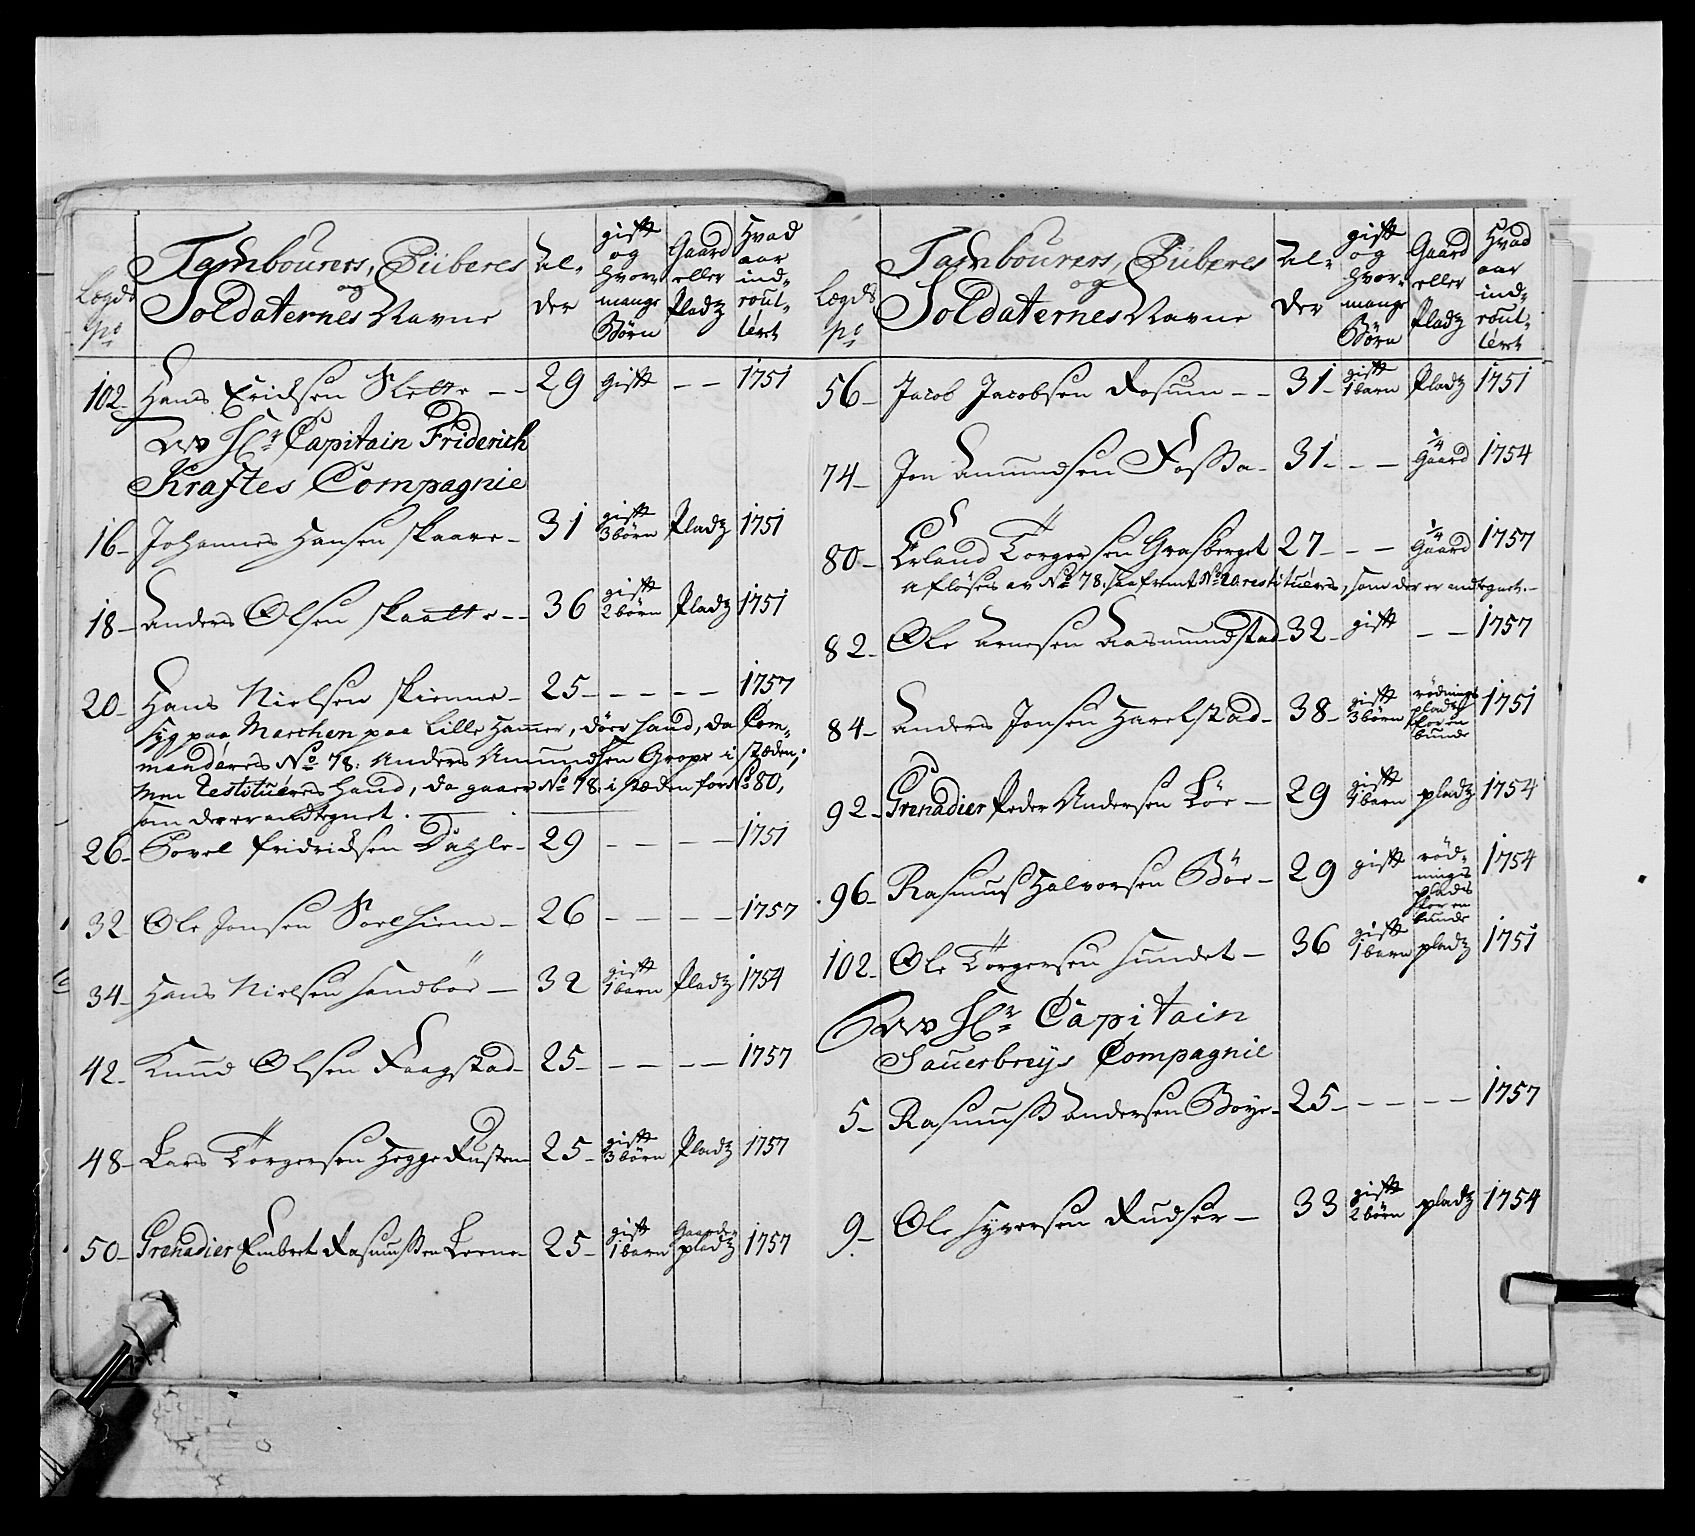 Lægds
No
Tambourers, Piiberes
og
Soldaternes Navne
Al-
der
gift
og
hvor-
mange
Børn
Gaard
eller
Pladz
Hvad
aar
ind-
roul-
léret
102- Hans Erichsen Slette - - 29 gift - - 1751
Hr Capitain Friderich
Kraftes Compagnie
16- Johannes Hansen Skaare- 31 gift 3 børn Pladz 1751
18- Anders Olsen Skaatte - - 36 gift 2 børn Pladz 1751
20- Hans Nielsen Skienne- 25 - - - - - 1757
sig paa Marchen paa Lille Hamer, døer hand, da Com-
manderes No 78. Anders Amundsen Grope i stæden;
Men Restitueres hand, da gaaer No 78. i stæden for No 80,
som der er andtegnet.
26- Povel Fridrichsen Dahle- 29 - - - - 1751
32 Ole Jonsen Solhiem- 26 - - - - 1757
34- Hans Nielsen Sandbøe- 32 gift 1 barn Pladz 1754
42- Knud Olsen Faagstad- 25- - - - - 1757
48- Lars Torgersen Heggerusten 25- gift 3 børn Pladz 1757
50- Grenadier Embret Rasmussen Leene- 25- gift 1 barn Gaards pladz 1757
Lægds
No
Tambourers, Piiberes
og
Soldaternes Navne
Al-
der
gift
og
hvor-
mange
Børn
Gaard
eller
Pladz
Hvad
aar
ind-
roul-
léret
56- Jacob Jacobsen Rosum - - 31- gift 1 barn Pladz 1751
74- Jon Amundsen Fossa- 31- - - 1/4 Gaard 1754
80- Erland Torgersen Grasberget 27- - - 1/4 Gaard 1757
afløses av No 78. saafremt No 20 restitueres, som der er andtegnet.-
82- Ole Arnesen Aasmundstad 32- gift - - 1757
84- Anders Jonsen Harelstad- 38- gift 3 børn rødnings pladz for en bunde 1751
92- Grenadier Peder Andersen Løe- 29 gift 1 barn pladz 1754
96- Rasmus Halvorsen Bøe- 29 gift rød-
nings
plads
for en
bunde 1754
102- Ole Torgersen Sundet- 36 gift 1 barn pladz 1751
Hr Capitain
Sauerbreys Compagnie
5- Rasmuss Andersen Boye- 25- - - - - 1757
9- Ole Syversen Rudser- 33 gift 2 børn pladz 1754